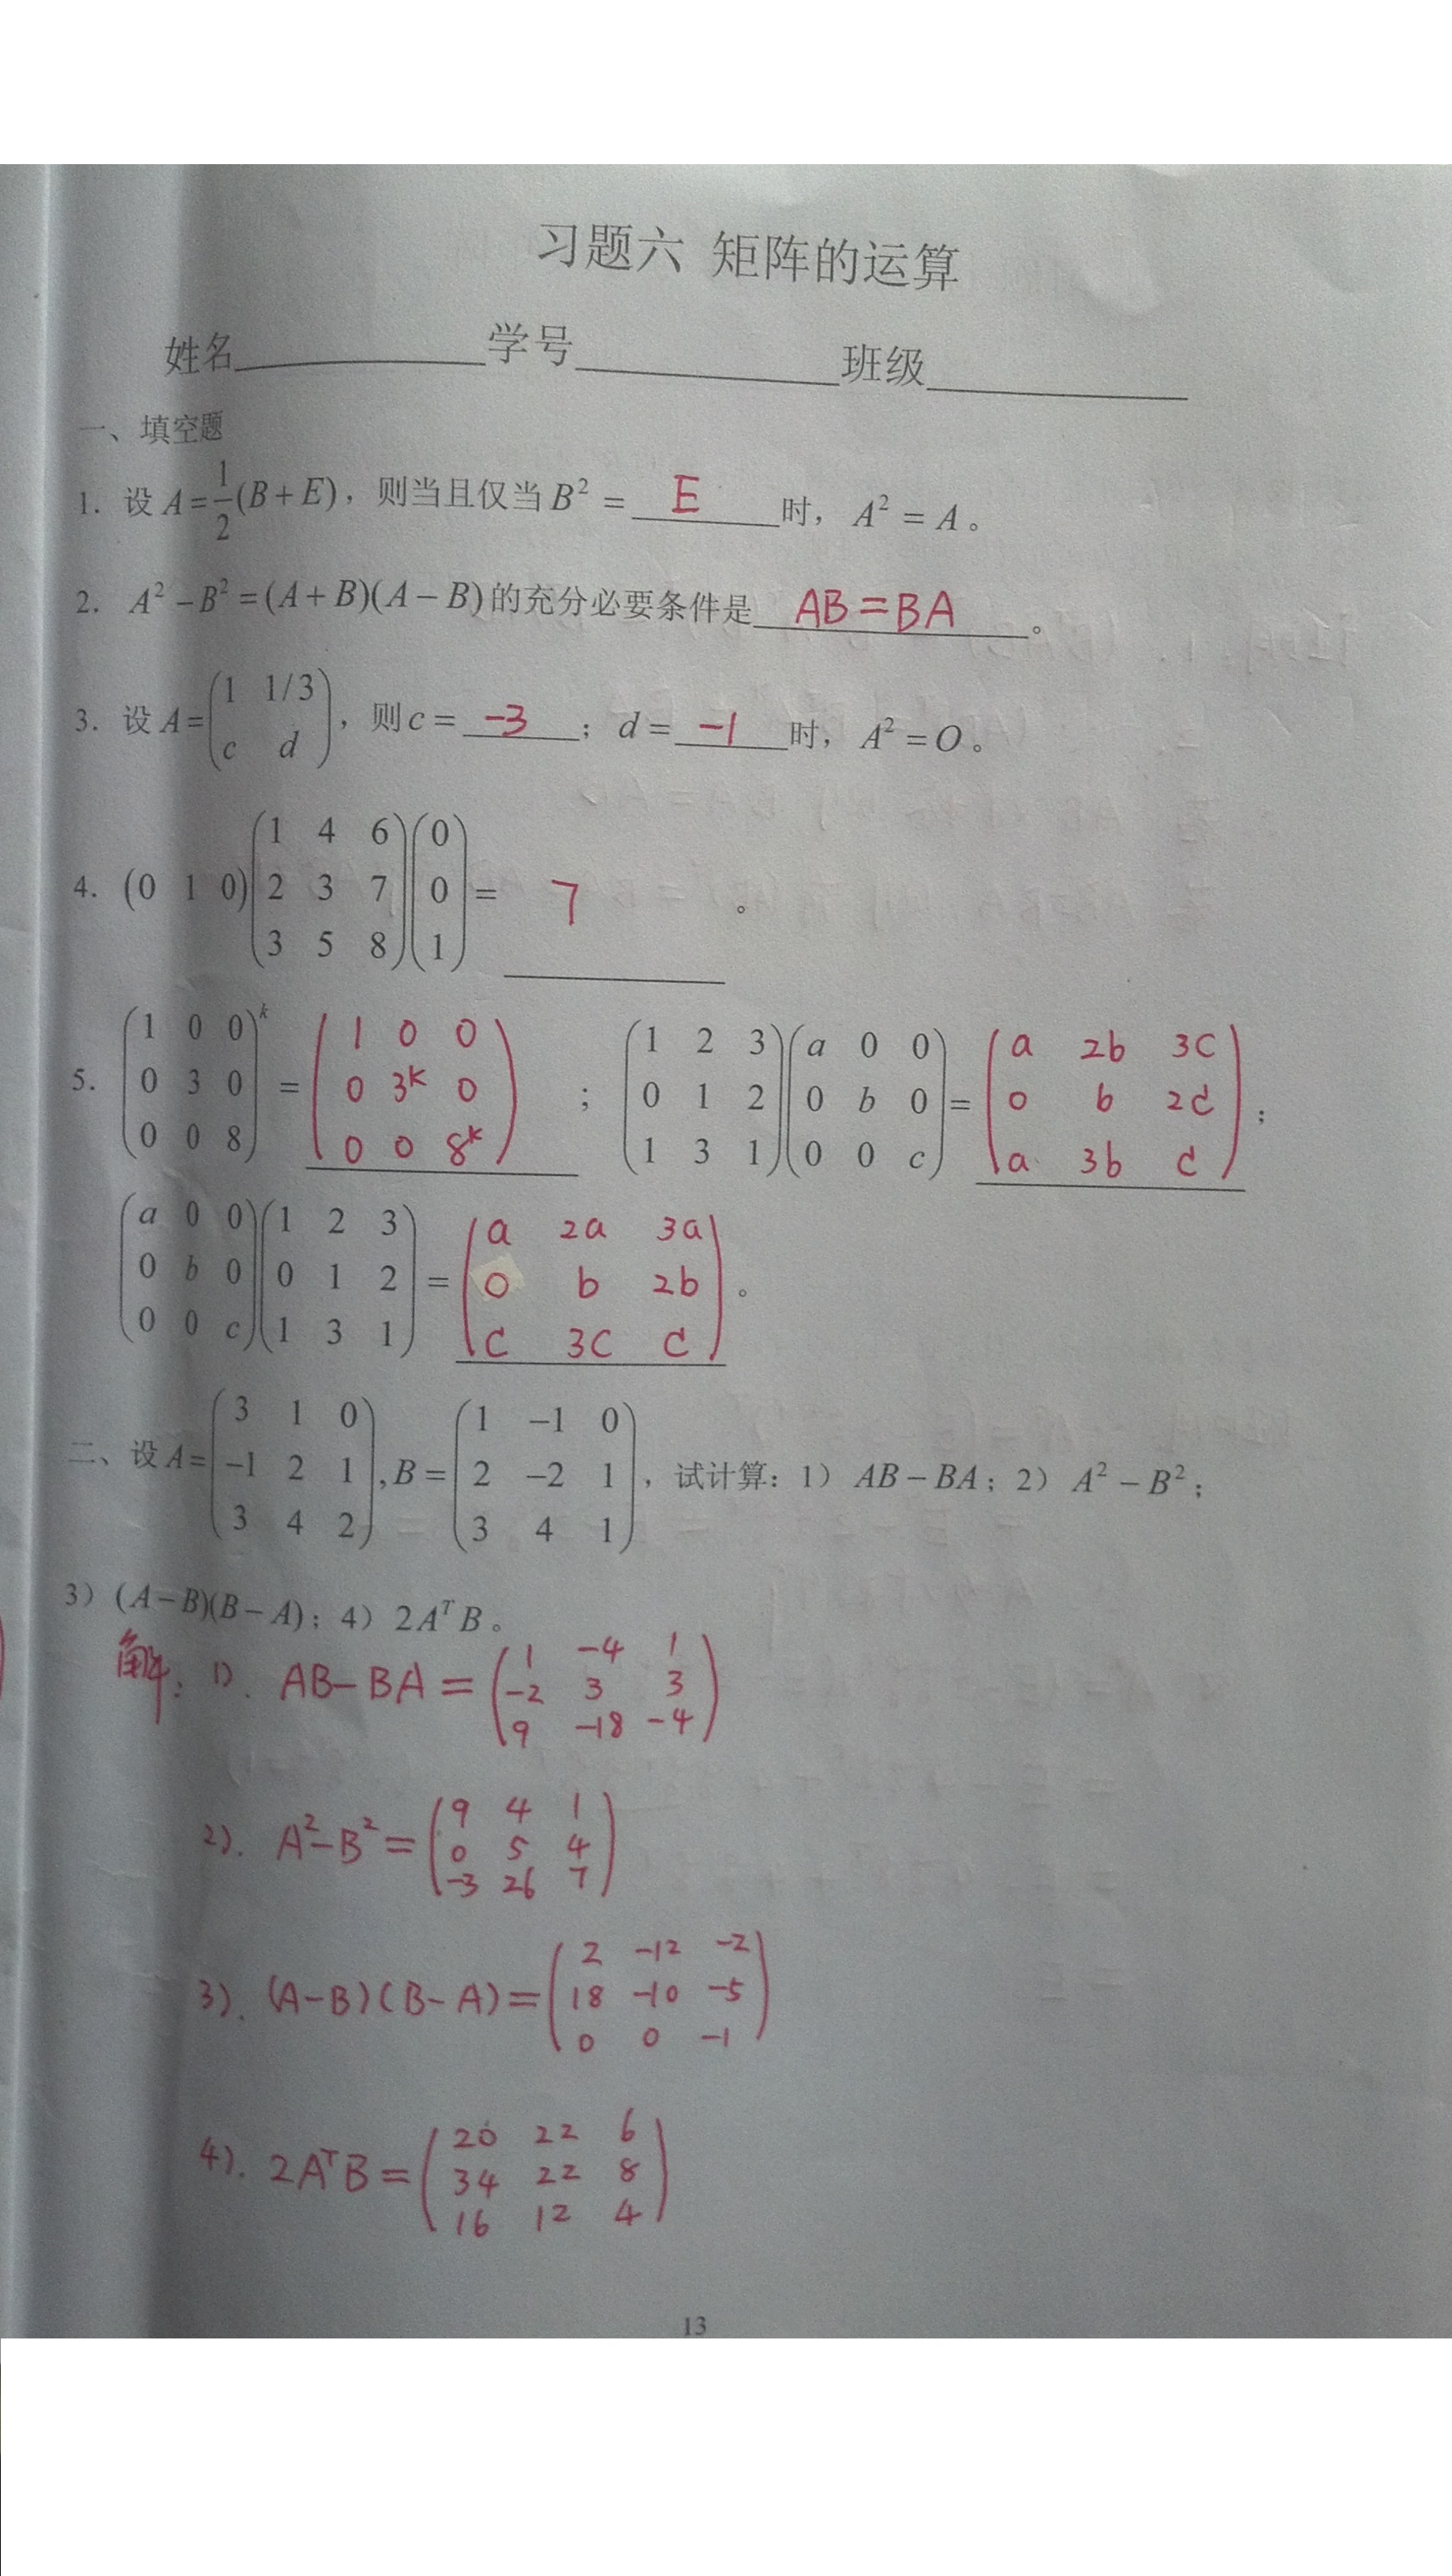 习题六 矩阵的运算
姓名 学号 班级
一、填空题
1. 设 A=1/2(B+E)，则当且仅当 B² = E 时， A² = A 。
2. A² −B² =(A+B)(A−B)的充分必要条件是 AB=BA 。
3. 设 A=(1 1/3
c d)，则 c= -3 ；d= -1 时， A² =O 。
4. (0 1 0)(1 4 6
2 3 7
3 5 8)(0
0
1)= 7 。
5. (1 0 0
0 3 0
0 0 8)^k = (1 0 0
0 3^k 0
0 0 8^k) ；
(1 2 3
0 1 2
1 3 1)(a 0 0
0 b 0
0 0 c)= (a 2b 3c
0 b 2c
a 3b c) ；
(a 0 0
0 b 0
0 0 c)(1 2 3
0 1 2
1 3 1)= (a 2a 3a
0 b 2b
c 3c c) 。
二、设 A=(3 1 0
−1 2 1
3 4 2), B=(1 −1 0
2 −2 1
3 4 1)，试计算：1） AB−BA；2） A² −B²；
3）(A−B)(B−A)；4） 2AᵀB 。
解：1). AB-BA=(1 -4 1
-2 3 3
9 -18 -4)
2). A²-B²=(9 4 1
0 5 4
-3 26 7)
3). (A-B)(B-A)=(2 -12 -2
18 -10 -5
0 0 -1)
4). 2AᵀB=(20 22 6
34 22 8
16 12 4)
13